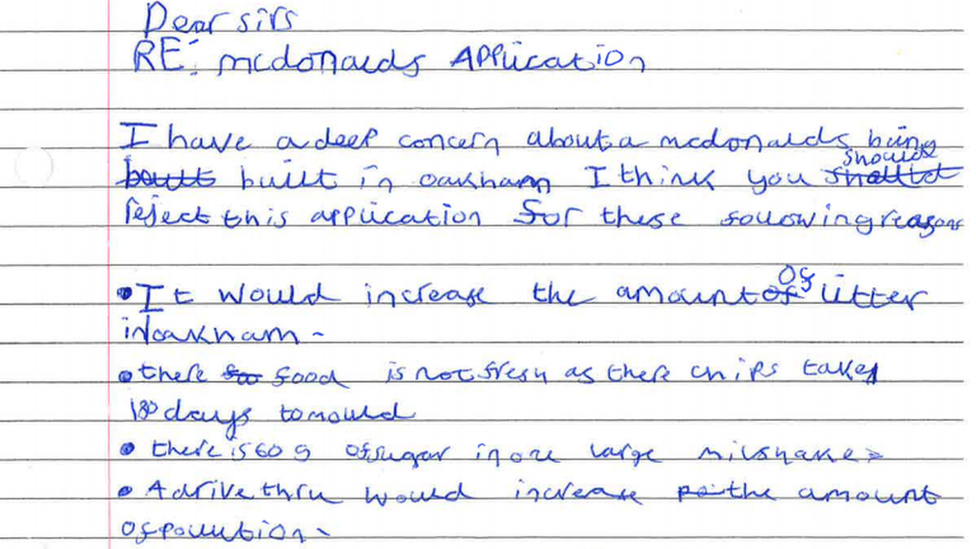 Dear sirs
RE: mcdonalds Application
I have a deep concern about a mcdonalds being
should
built in oakham I think you
reject this application for these following reasons
of
• It would increase the amount litter
in oakham.
• there food is not fresh as there chips takes
180 days to mould
• there is 60 g of sugar in one large milshake
• A drive thru would increase the amount
of pollution.